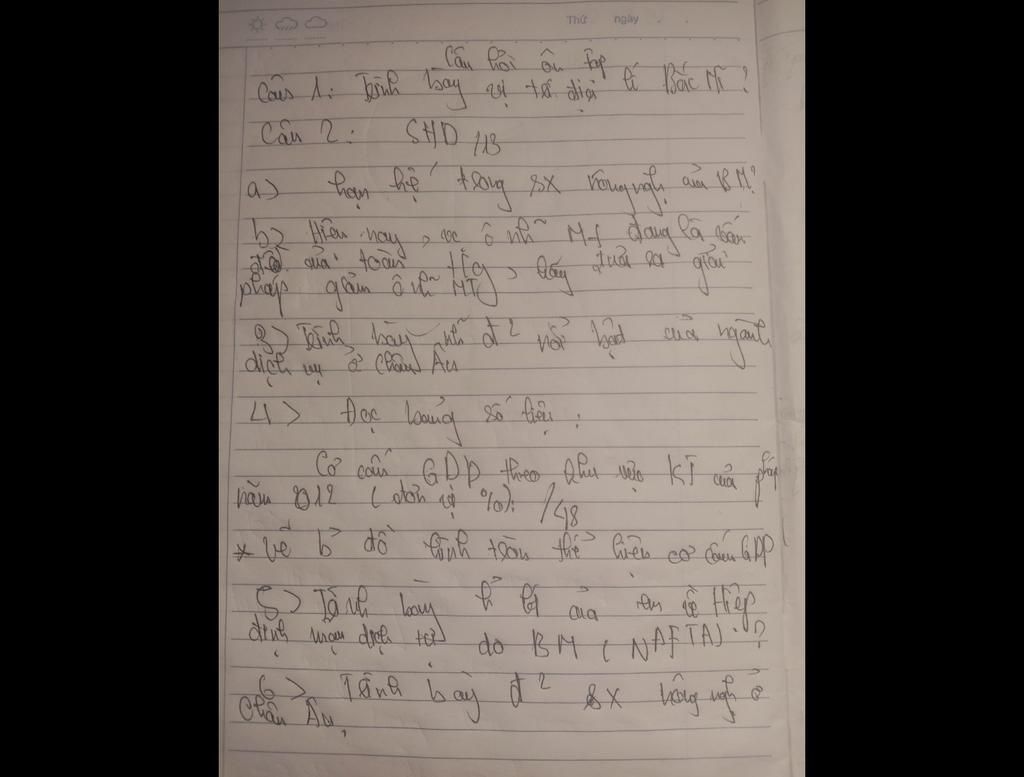 Thứ ngày . .
Câu hỏi ôn tập
Câu 1: Trình bày vị trí địa lí Bắc Mĩ?
Câu 2: SHD /13
a> hạn chế trong sx nông ngh của BM?
b> Hiện nay, ô nhĩ MT đang là vấn
đề của toàn TG, hãy đưa ra giải
pháp giảm ô nhĩ MT
3> Trình bày nhĩ đ² nổi bật của ngành
dịch vụ ở Châu Âu
4> Đọc bảng số liệu:
Cơ cấu GDP theo khu vực KT của pháp
năm 2012 (đơn vị %): /48
* Vẽ b đồ hình tròn thể hiện cơ cấu GDP
5> Trình bày h b của em về Hiệp
định mậu dịch tự do BM (NAFTA).?
6> Trình bày đ² sx nông ngh ở
Châu Âu,